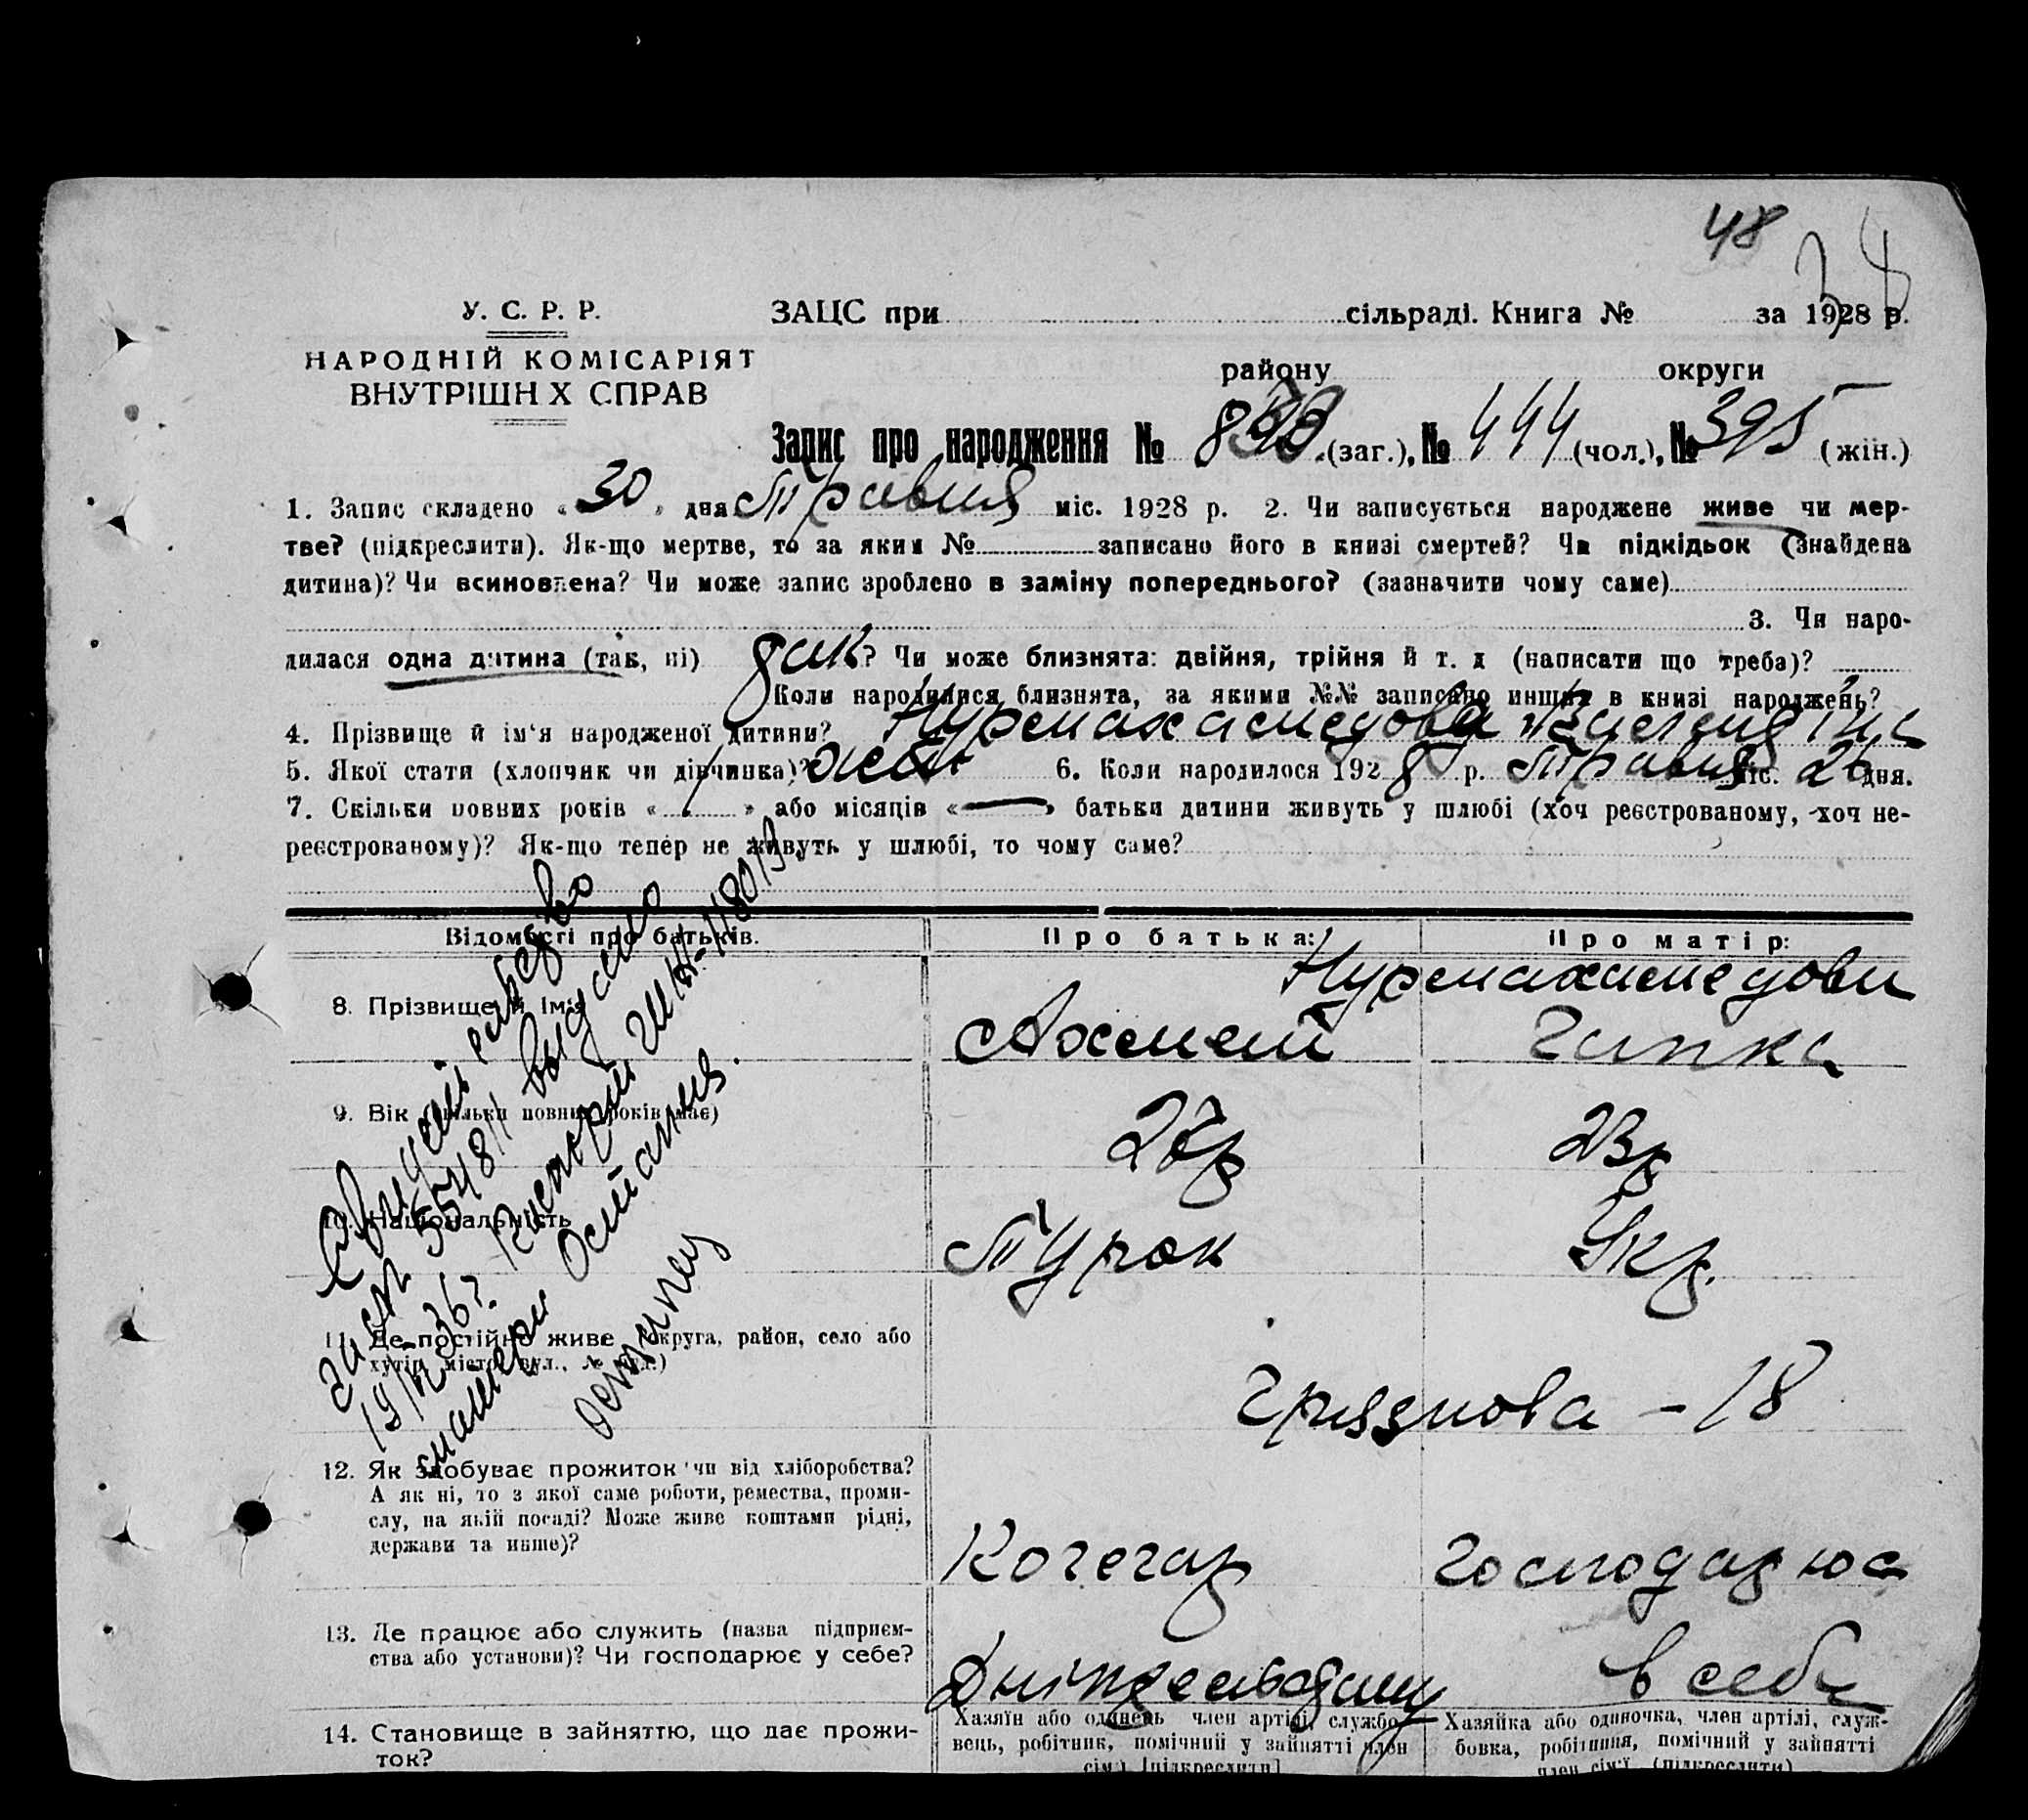 48
34
У. С. Р. Р.
НАРОДНІЙ КОМІСАРІЯТ
ВНУТРІШН Х СПРАВ
ЗАЦС при сільраді. Книга № за 1928 р.
району округи
Запис про народження № (заг.), № 444 (чол.), № 395 (жін.)
1. Запис складено « 30 » дня Травня міс. 1928 р. 2. Чи записується народжене живе чи мер-
тве? (підкреслити). Як-що мертве, то за яким № записано його в книзі смертей? Чи підкідьок (знайдена
дитина)? Чи всиновлена? Чи може запис зроблено в заміну попереднього? (зазначити чому саме)
3. Чи наро-
дилася одна дитина (так, ні) так? Чи може близнята: двійня, трійня й т. д (написати що треба)?
Коли народилися близнята, за якими №№ записано инших в книзі народжень?
4. Прізвище й ім'я народженої дитини? Нурмахамедова
5. Якої стати (хлопчик чи дівчинка)? жін 6. Коли народилося 1928 р. Травня міс. 26 дня.
7. Скільки повних років « 1 » або місяців « — » батьки дитини живуть у шлюбі (хоч реєстрованому, хоч не-
реєстрованому)? Як-що тепер не живуть у шлюбі, то чому саме?
Відомості про батьків.
Про батька:
Про матір:
8. Прізвище й ім'я
Нурмахамедови
Ахмет
Гапка
9. Вік (скільки повних років має)
23р
10. Національність
Турок
Укр.
11. Де постійно живе (округа, район, село або
хутір, місто, вул., № буд.)
Грязнова - 18
12. Як здобуває прожиток чи від хліборобства?
А як ні, то з якої саме роботи, ремества, проми-
слу, на якій посаді? Може живе коштами рідні,
держави та инше)?
Кочегар
Господарює
13. Де працює або служить (назва підприєм-
ства або установи)? Чи господарює у себе?
в себе
14. Становище в зайняттю, що дає прожи-
ток?
Хазяїн або одинець член артілі, службо-
вець, робітник, помічний у зайнятті член
сім'ї [підкреслити]
Хазяйка або одиночка, член артілі, служ-
бовка, робітниця, помічний у зайнятті
член сім'ї (підкреслити)
выдано